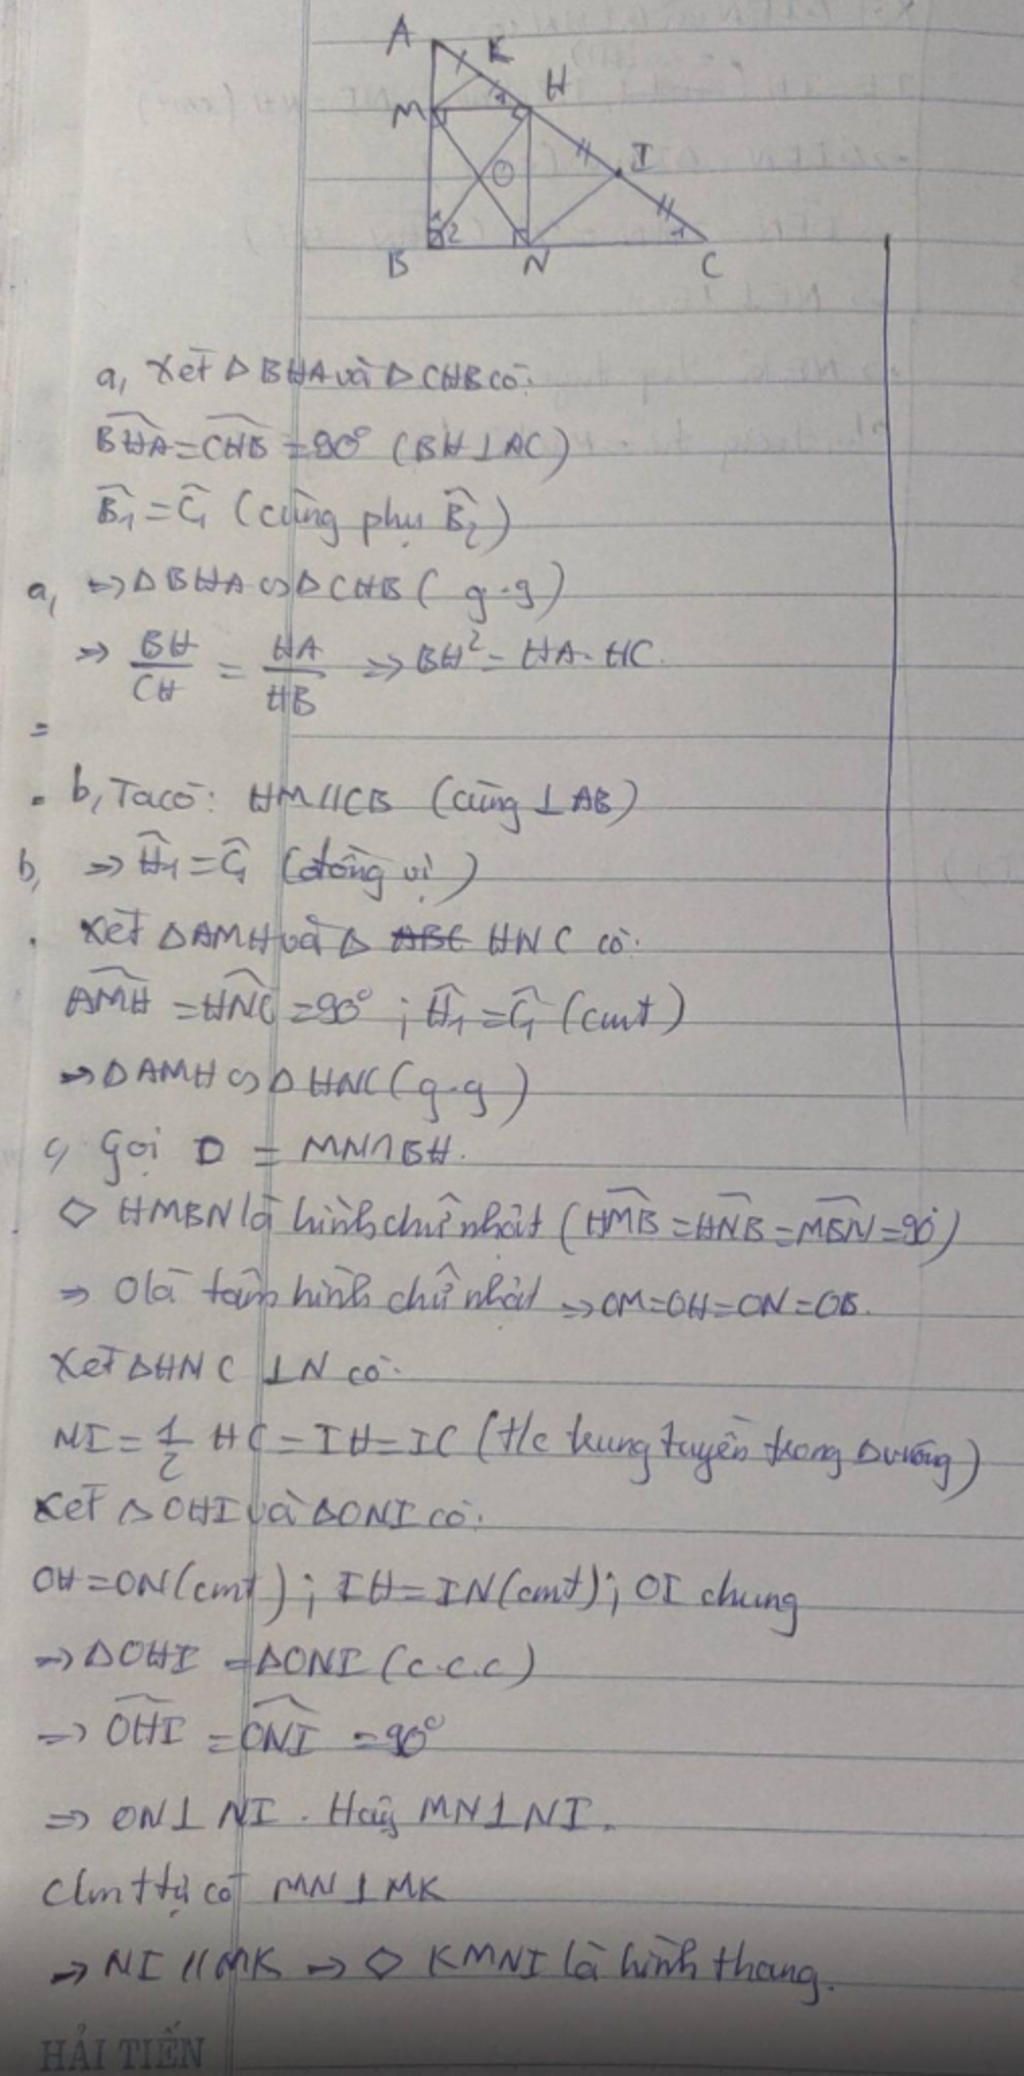 A
K
H
M
O
I
B
N
C
a, Xét Δ BHA và Δ CHB có:
BHA = CHB = 90° (BH ⊥ AC)
B̂1 = Ĉ1 (cùng phụ B̂2)
a, => Δ BHA ∽ Δ CHB ( g.g)
=> BH/CH = HA/HB => BH² = HA.HC.
=
b, Ta có: HM // CB (cùng ⊥ AB)
b, => Ĥ1 = Ĉ1 (đồng vị)
Xét Δ AMH và Δ ABC HNC có:
AMH = HNC = 90° ; Ĥ1 = Ĉ1 (cmt)
=> Δ AMH ∽ Δ HNC (g.g)
c, Gọi O = MN ∩ BH.
◇ HMBN là hình chữ nhật (HMB = HNB = MBN = 90°)
=> O là tâm hình chữ nhật => OM = OH = ON = OB.
Xét Δ HNC ⊥ N có:
NI = 1/2 HC = IH = IC (t/c trung tuyến trong Δ vuông)
Xét Δ OHI và Δ ONI có:
OH = ON (cmt) ; IH = IN (cmt) ; OI chung
=> Δ OHI = Δ ONI (c.c.c)
=> OHI = ONI = 90°
=> ON ⊥ NI . Hay MN ⊥ NI.
Cm ttự có MN ⊥ MK
=> NI // MK => ◇ KMNI là hình thang.
HẢI TIẾN